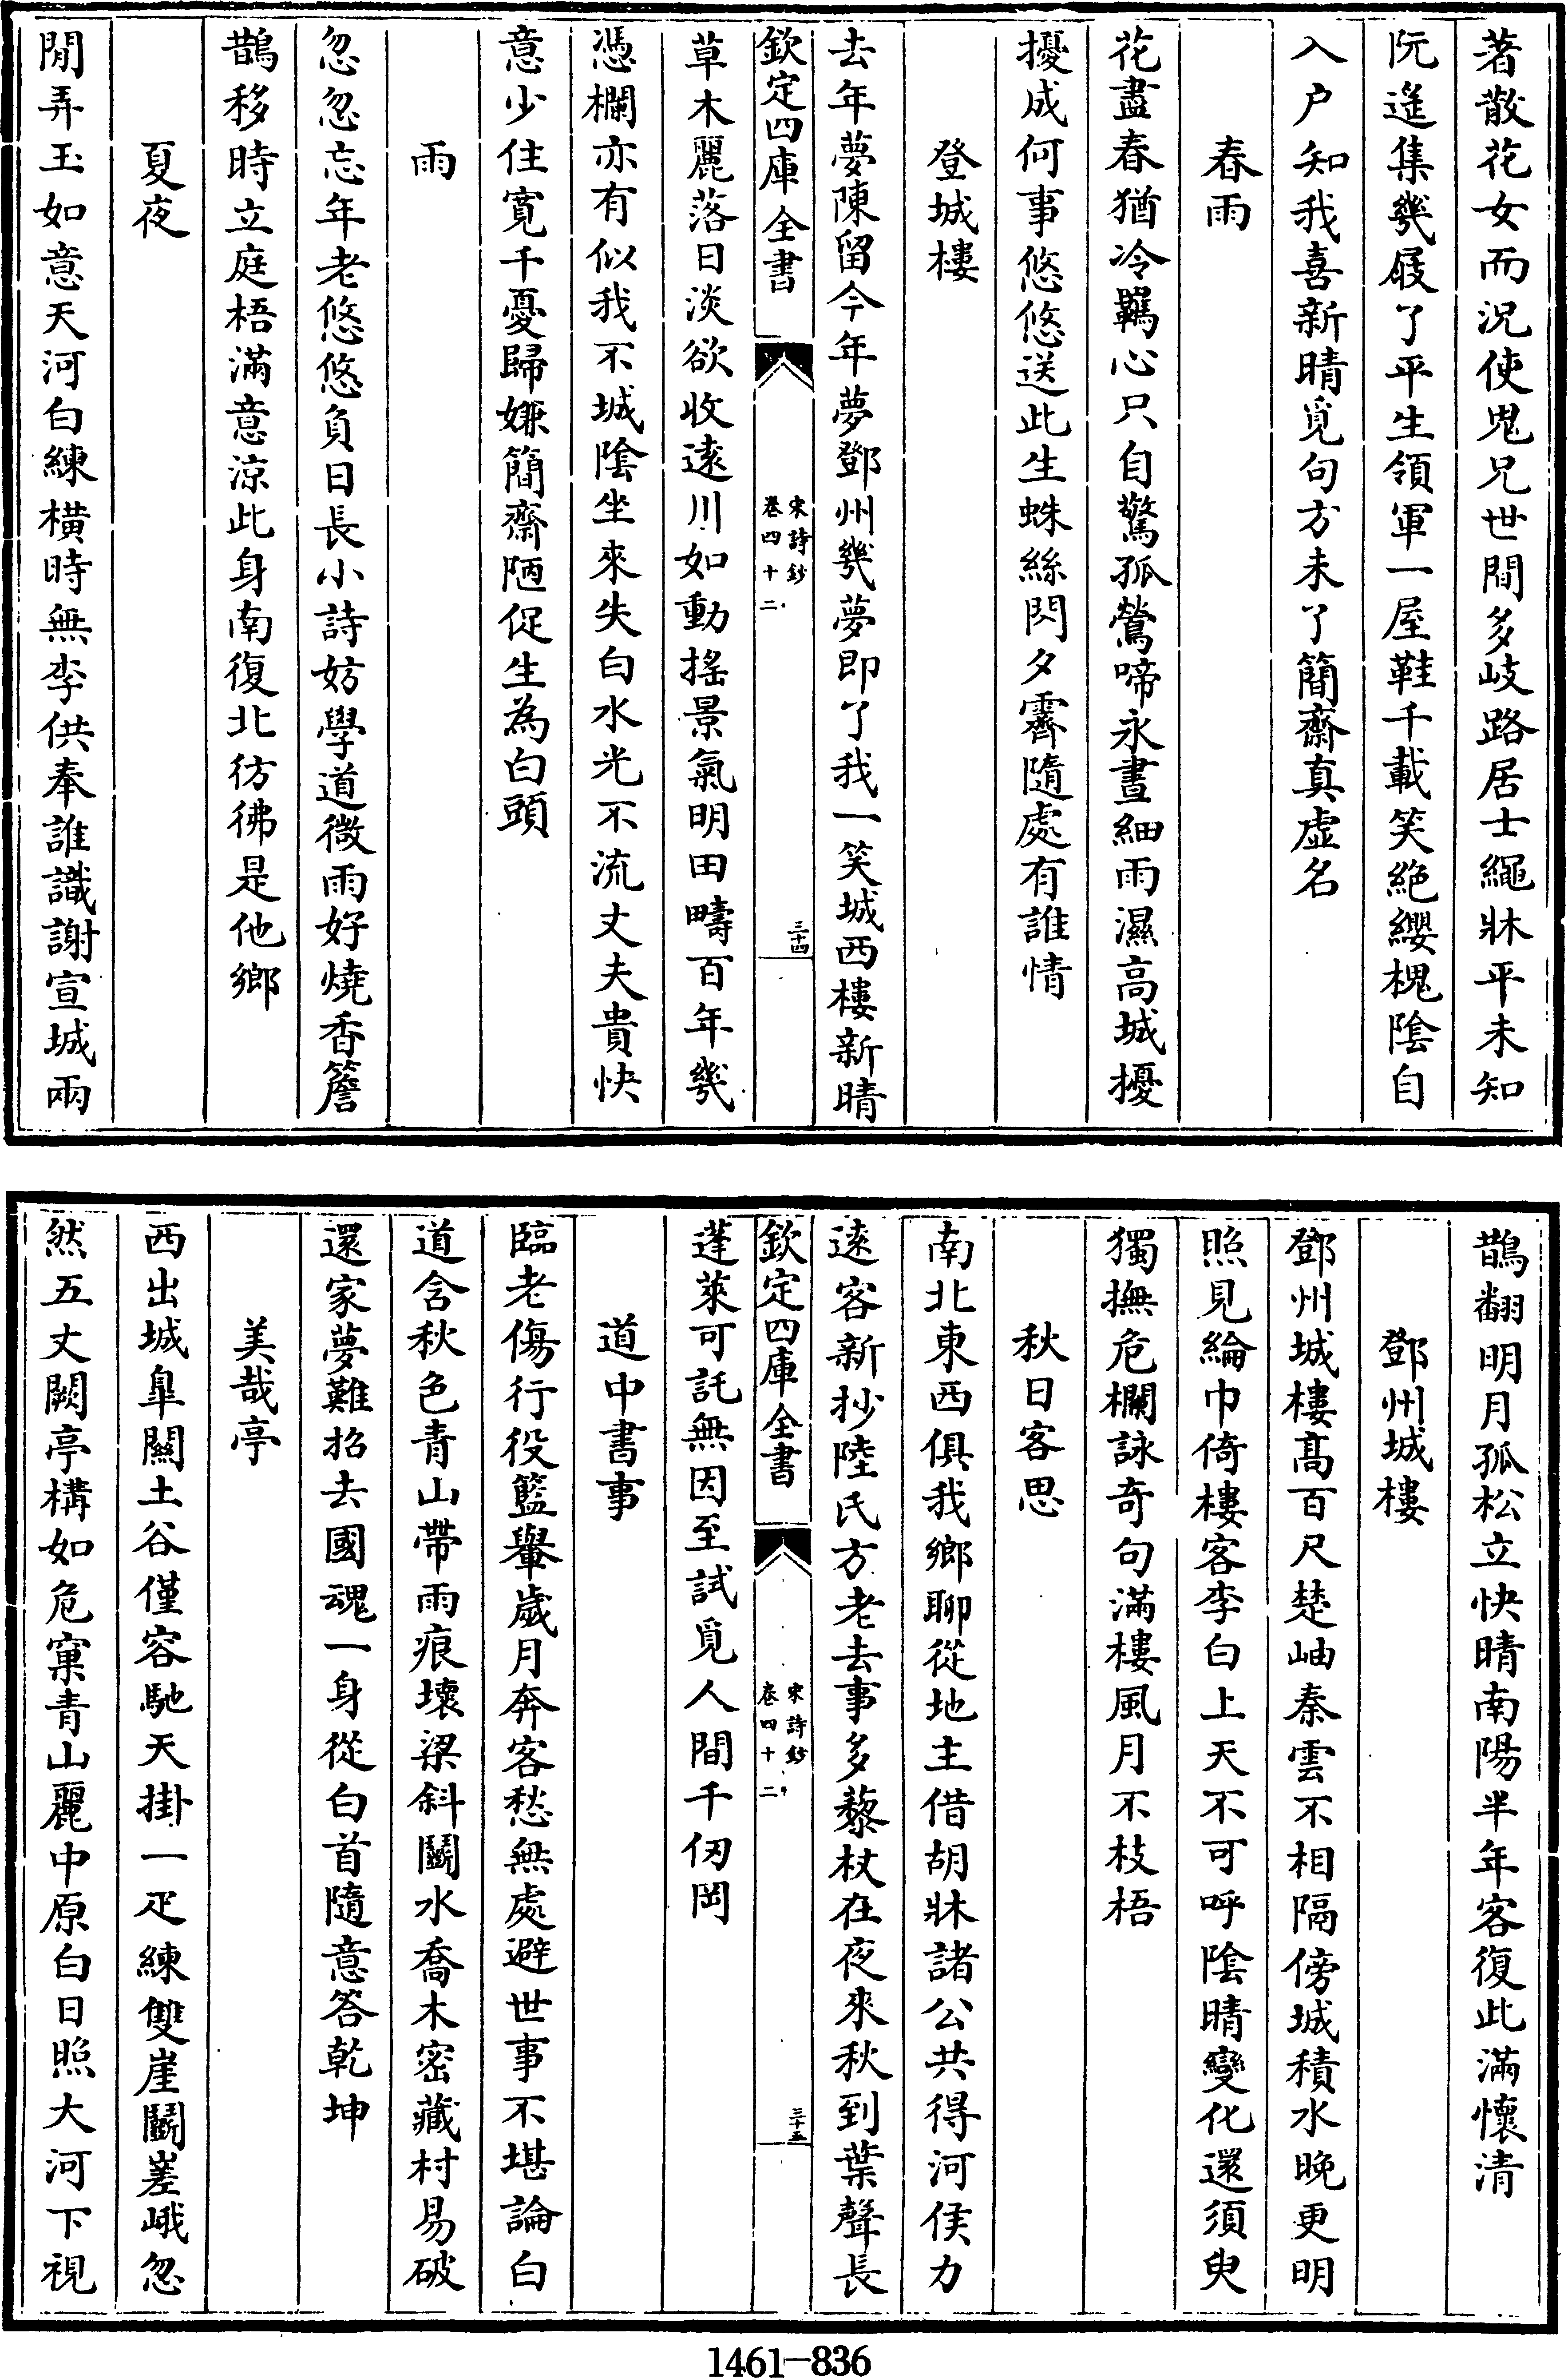 著散花女而況使鬼兄世間多岐路居士繩牀平未知
阮遥集幾屐了平生領軍一屋鞋千載笑絶纓槐陰自
入户知我喜新晴覓句方未了簡齋真虚名
春雨
花盡春猶冷羈心只自驚孤鶯啼永晝細雨濕高城擾
擾成何事悠悠送此生蛛絲閃夕霽隨處有誰情
登城樓
去年夢陳留今年夢鄧州幾夢即了我一笑城西樓新晴
欽定四庫全書
宋詩鈔
卷四十二
三十四
草木麗落日淡欲收遠川如動揺景氣明田疇百年幾
憑欄亦有似我不城陰坐來失白水光不流丈夫貴快
意少住寛千憂歸嫌簡齋陋促生為白頭
雨
忽忽忘年老悠悠負日長小詩妨學道微雨好燒香簷
鵲移時立庭梧滿意涼此身南復北彷彿是他鄉
夏夜
閒弄玉如意天河白練橫時無李供奉誰識謝宣城兩
鵲翻明月孤松立快晴南陽半年客復此滿懷清
鄧州城樓
鄧州城樓髙百尺楚岫秦雲不相隔傍城積水晚更明
照見綸巾倚樓客李白上天不可呼陰晴變化還須臾
獨撫危欄詠奇句滿樓風月不枝梧
秋日客思
南北東西俱我鄉聊從地主借胡牀諸公共得河侯力
遠客新抄陸氏方老去事多藜杖在夜來秋到葉聲長
欽定四庫全書
宋詩鈔
卷四十二
三十五
蓬萊可託無因至試覓人間千仞岡
道中書事
臨老傷行役籃轝歲月奔客愁無處避世事不堪論白
道含秋色青山帶雨痕壞梁斜鬭水喬木密藏村易破
還家夢難招去國魂一身從白首隨意答乾坤
美哉亭
西出城臯關土谷僅容馳天掛一疋練雙崖鬭嵳峨忽
然五丈闕亭構如危窠青山麗中原白日照大河下視
1461-836